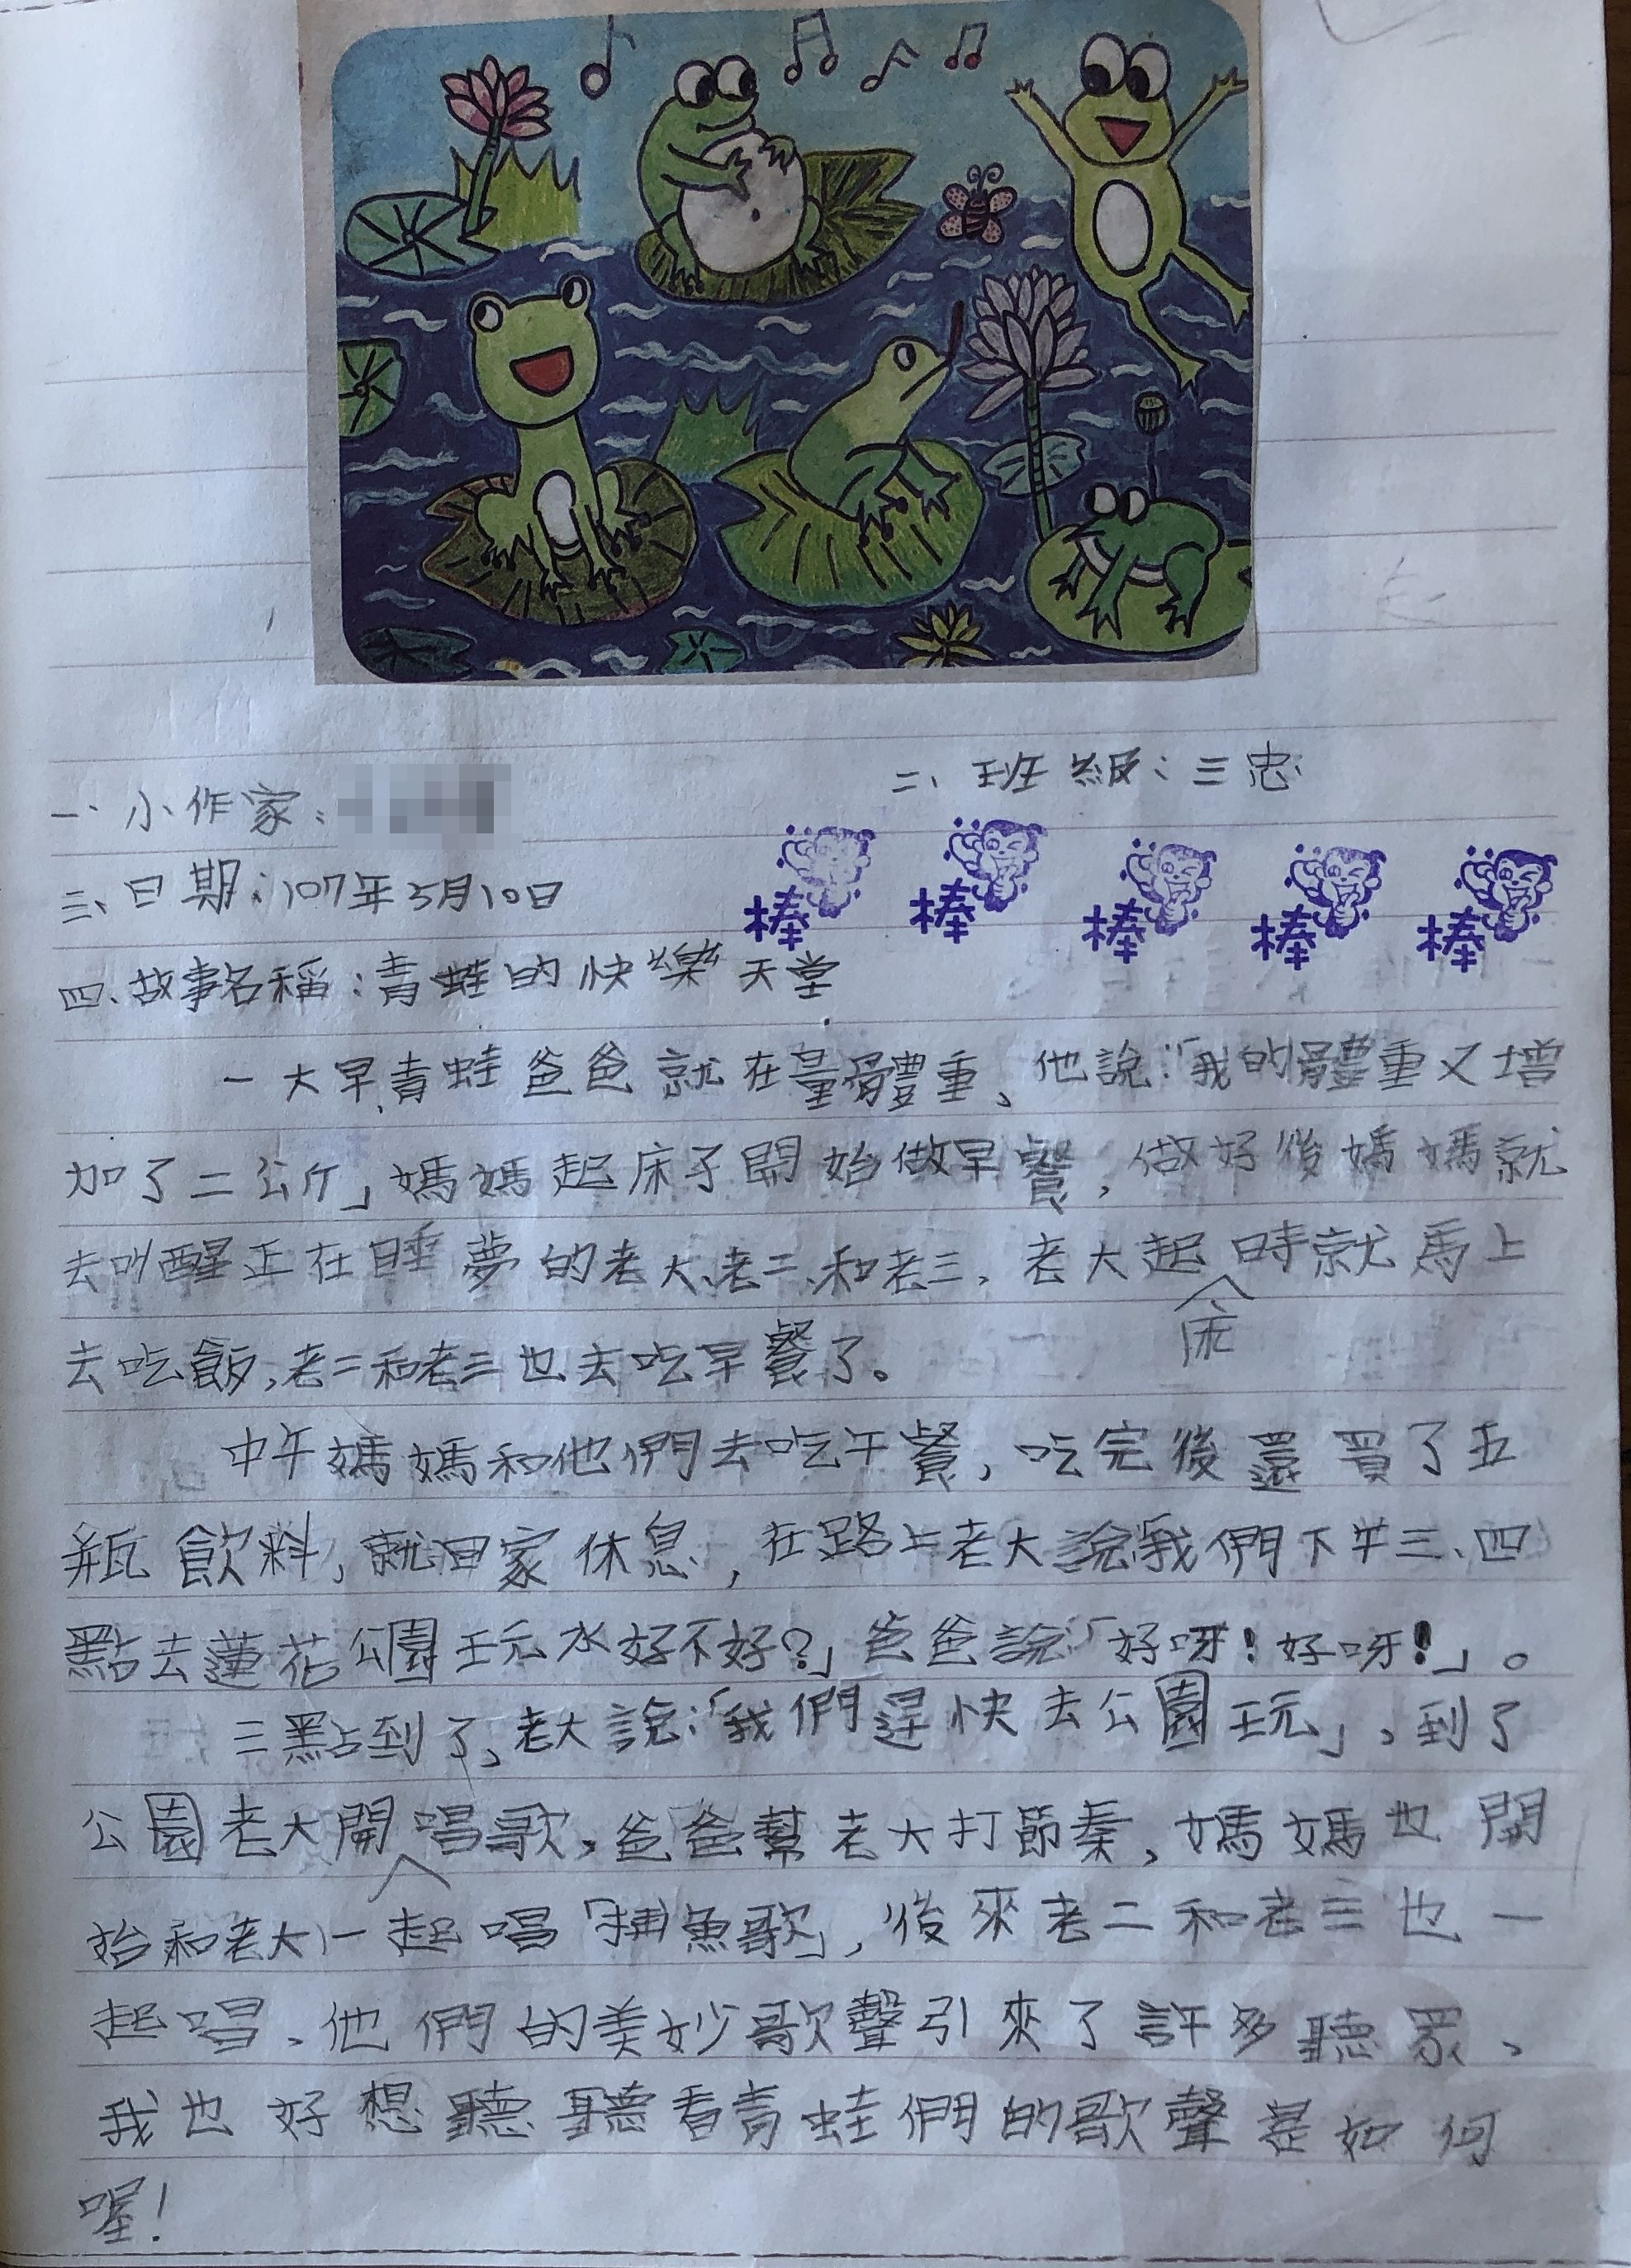 一、小作家:
二、班級:三忠
三、日期:107年5月10日
棒 棒 棒 棒 棒
四、故事名稱:青蛙的快樂天堂
一大早,青蛙爸爸就在量體重、他說:「我的體重又增
加了二公斤」媽媽起床了開始做早餐,做好後媽媽就
去叫醒正在睡夢的老大、老二、和老三,老大起床時就馬上
去吃飯,老二和老三也去吃早餐了。
中午媽媽和他們去吃午餐,吃完後還買了五
瓶飲料,就回家休息,在路上老大說我們下午三、四
點去蓮花公園玩水好不好?」爸爸說「好呀!好呀!」。
三點到了,老大說:「我們趕快去公園玩」,到了
公園老大開唱歌,爸爸幫老大打節奏,媽媽也開
始和老大一起唱「捕魚歌」,後來老二和老三也一
起唱、他們的美妙歌聲引來了許多聽眾、
我也好想聽聽看青蛙們的歌聲是如何
喔!